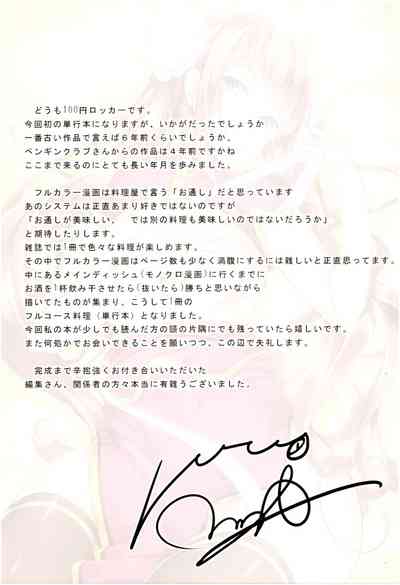 どうも100円ロッカーです。
今回初の単行本になりますが、いかがだったでしょうか
一番古い作品で言えば６年前くらいでしょうか。
ペンギンクラブさんからの作品は４年前ですかね
ここまで来るのにとても長い年月を歩みました。
フルカラー漫画は料理屋で言う「お通し」だと思っています
あのシステムは正直あまり好きではないのですが
「お通しが美味しい、 では別の料理も美味しいのではないだろうか」
と期待したりします。
雑誌では1冊で色々な料理が楽しめます。
その中でフルカラー漫画はページ数も少なく満腹にするには難しいと正直思ってます。
中にあるメインディッシュ(モノクロ漫画)に行くまでに
お酒を1杯飲み干させたら(抜いたら)勝ちと思いながら
描いてたものが集まり、こうして1冊の
フルコース料理（単行本）となりました。
今回私の本が少しでも読んだ方の頭の片隅にでも残っていたら嬉しいです。
また何処かでお会いできることを願いつつ、この辺で失礼します。
完成まで辛抱強くお付き合いいただいた
編集さん、関係者の方々本当に有難うございました。